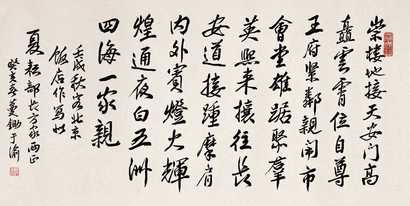 崇楼地接天安门高
矗云霄位自尊
王府紧邻亲闹市
会堂雄踞聚群
英熙来攘往长
安道接踵摩肩
内外宾灯大辉
煌通夜白五洲
四海一家亲
壬戌秋客北京
饭店作写北
夏 部长方家两正
癸亥春 于渝